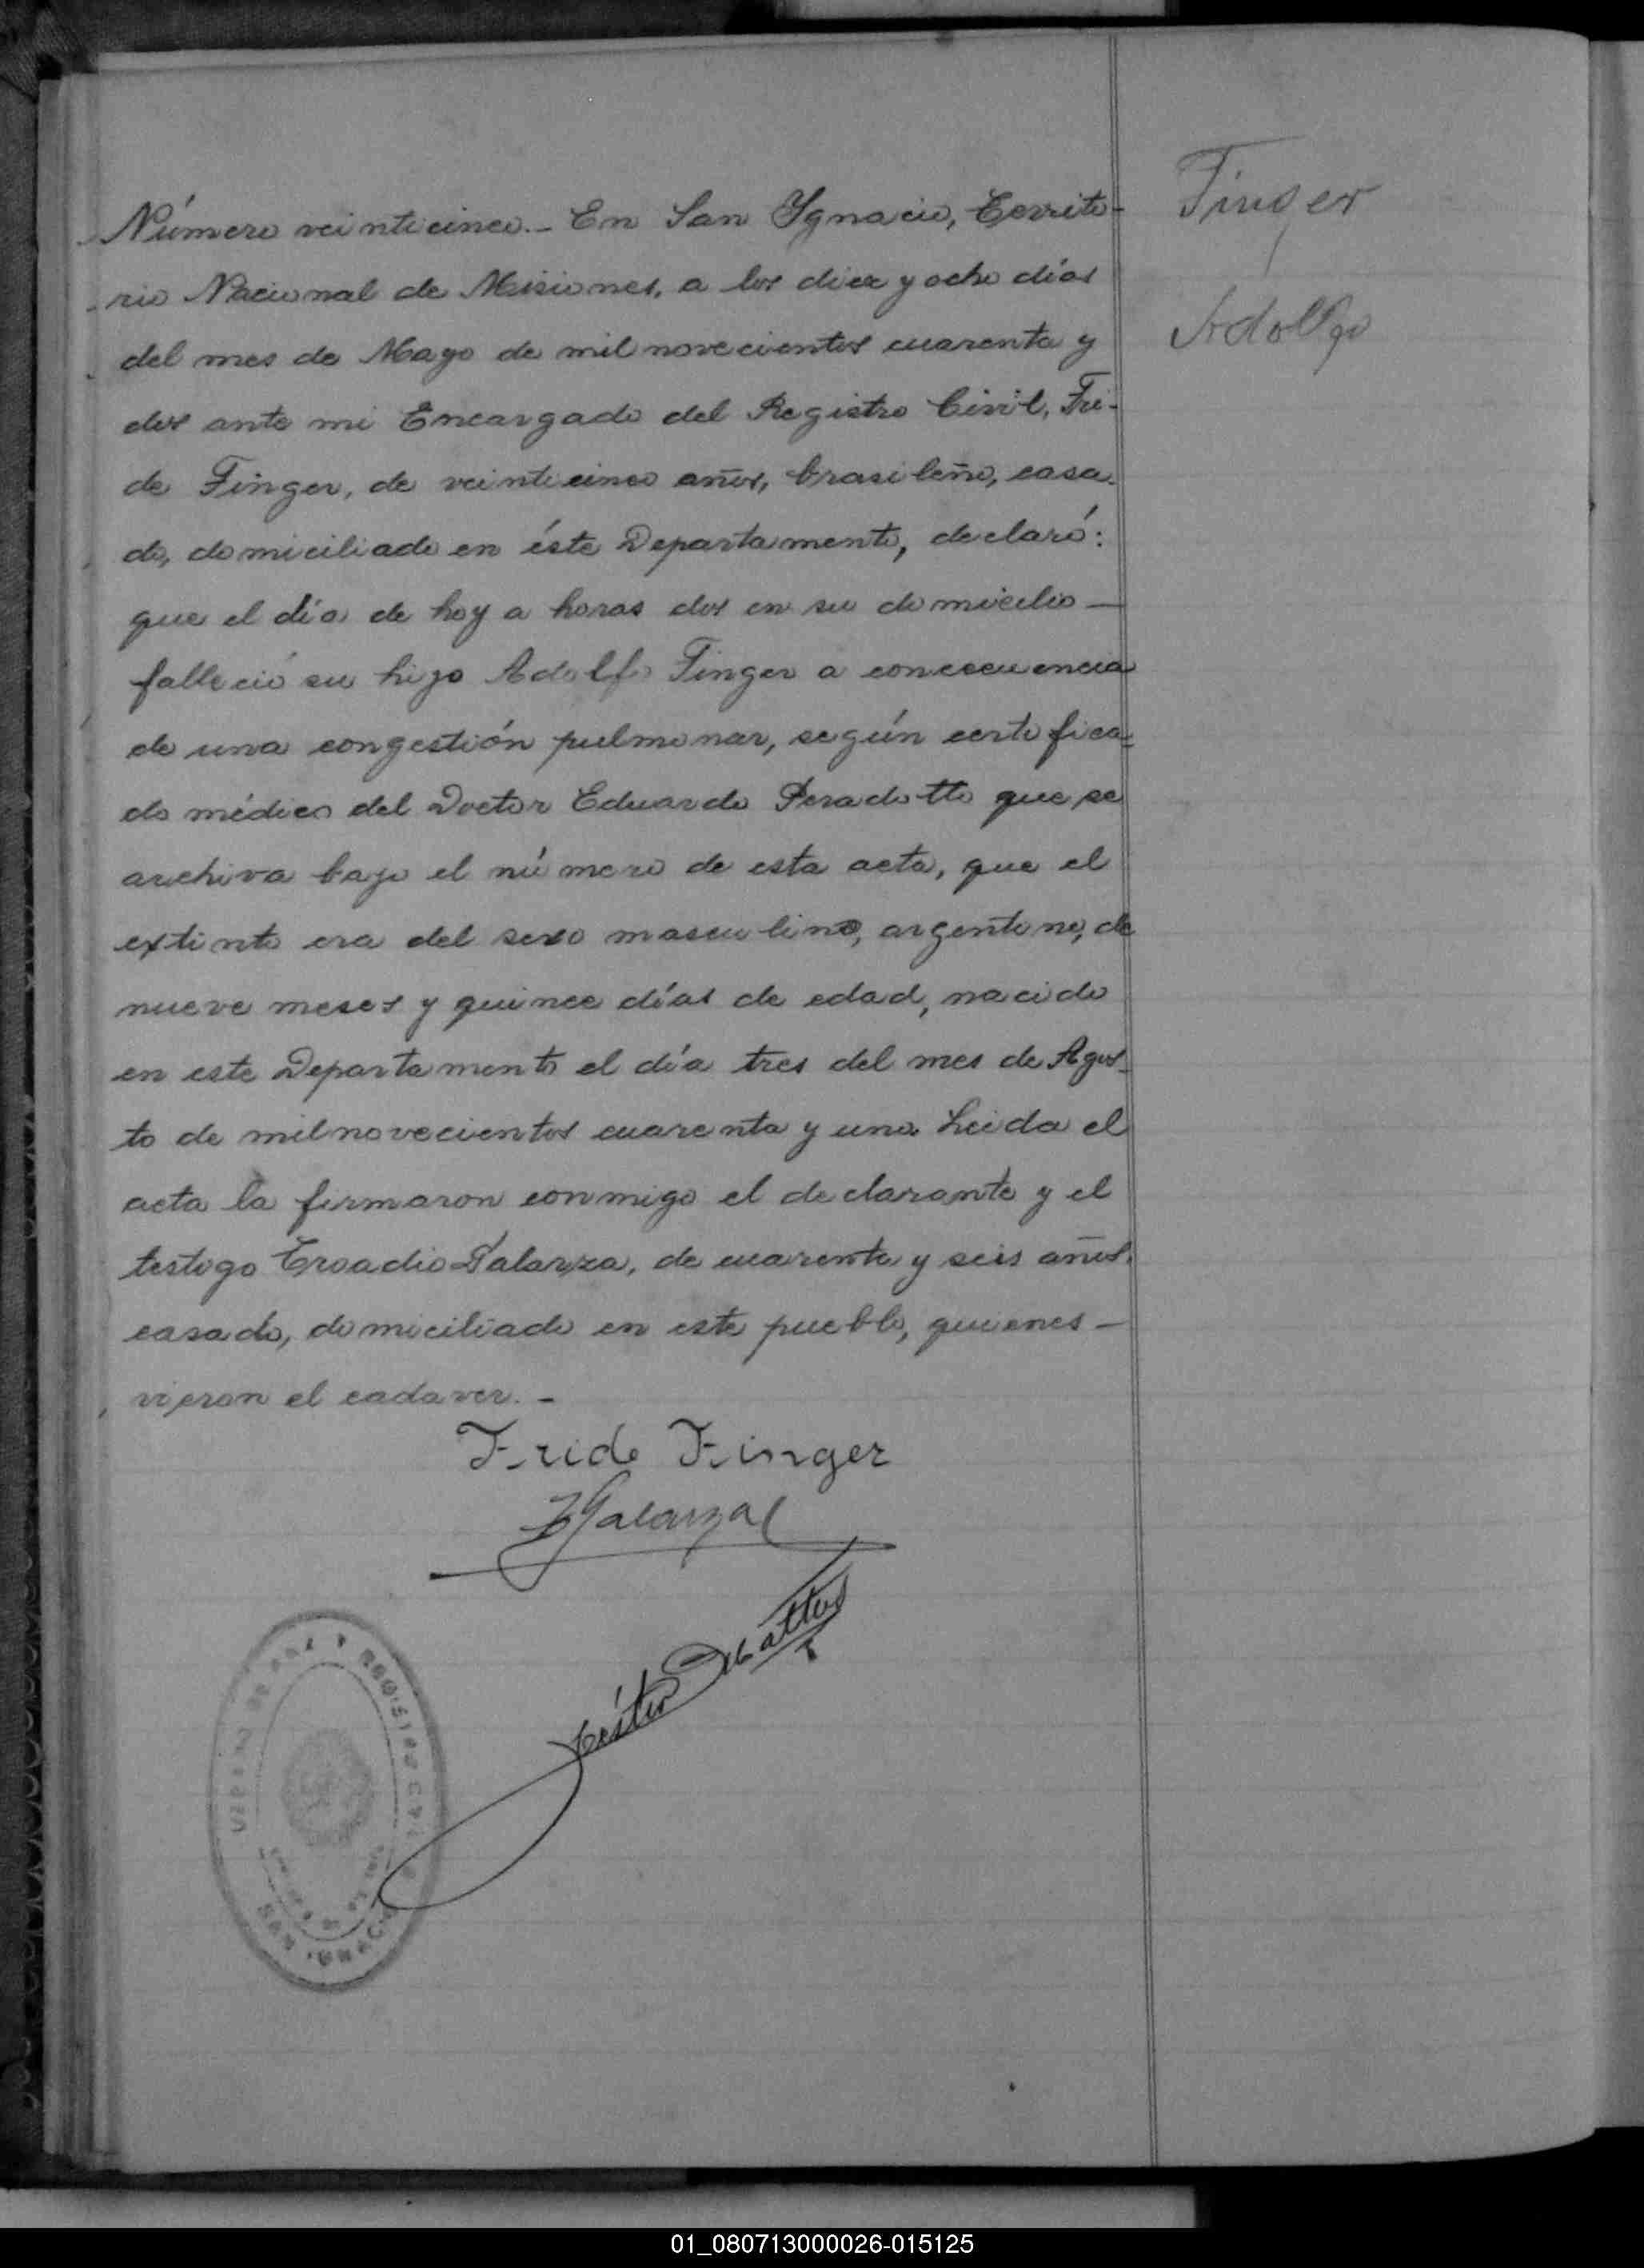 Número veinticinco.- En San Ygnacio, Territo-
Finger
rio Nacional de Misiones, a los diez y ocho días
Adolfo
del mes de Mayo de mil novecientos cuarenta y
dos ante mi Encargado del Registro Civil, Fri-
do Finger, de veinticinco años, brasileño, casa-
do, domiciliado en éste Departamento, declaró:
que el día de hoy a horas dos en su domicilio —
falleció su hijo Adolfo Finger a concecuencia
de una congestión pulmonar, según certifica-
do médico del Doctor Eduardo Peradotto que se
archiva bajo el número de esta acta, que el
extinto era del sexo masculino, argentino, de
nueve meses y quince días de edad, nacido
en este Departamento el día tres del mes de Agos-
to de mil novecientos cuarenta y uno. Leida el
acta la firmaron conmigo el declarante y el
testigo Galarza, de cuarenta y seis años,
casado, domiciliado en este pueblo, quienes —
vieron el cadaver. -
Frido Finger
Galarza
Mattos
REGISTRO CIVIL
SAN IGNACIO
01_080713000026-015125